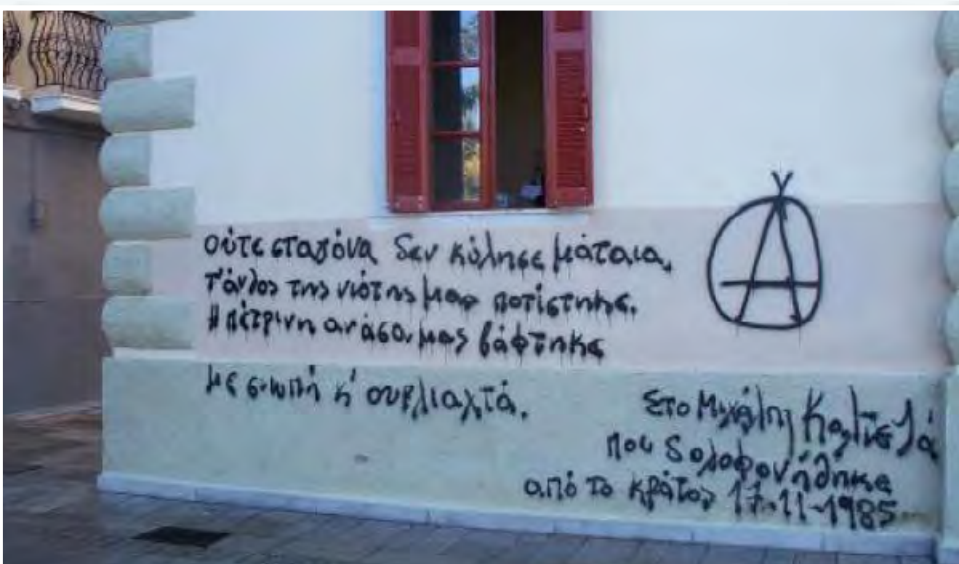 ούτε σταγόνα δεν κύλησε μάταια,
τ' άνθος της νιότης μας ποτίστηκε.
Η πέτρινη ανάσα μας βάφτηκε
με σιωπή κ' ουρλιαχτά.
Στο Μιχάλη Καλτεζά
που δολοφονήθηκε
από το κράτος 17-11-1985